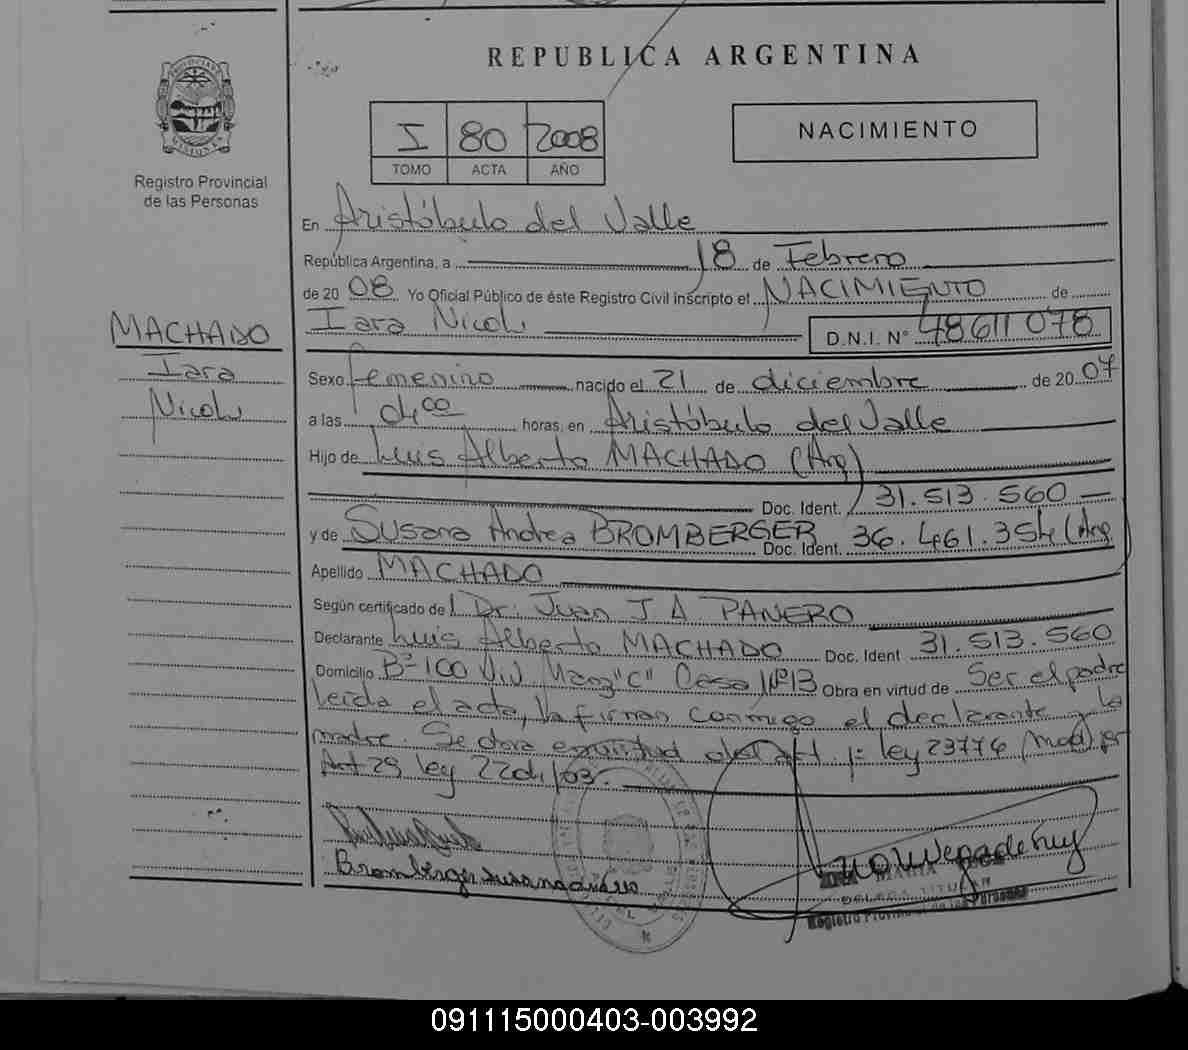 REPUBLICA ARGENTINA
PROVINCIA DE
MISIONES
Registro Provincial
de las Personas
I 80 2008
TOMO ACTA AÑO
NACIMIENTO
En Aristóbulo del Valle
República Argentina, a 18 de Febrero
de 20 08 Yo Oficial Público de éste Registro Civil inscripto el NACIMIENTO de
Iara Nicole D.N.I. Nº 48611078
MACHADO
Iara
Nicole
Sexo femenino nacido el 21 de diciembre de 20 07
a las horas, en Aristóbulo del Valle
Hijo de Luis Alberto MACHADO (Arg)
Doc. Ident. 31.513.560
y de Susana Andrea BROMBERGER Doc. Ident. 36.461.354 (Arg
Apellido MACHADO
Según certificado del Dr. Juan J A. PANERO
Declarante Luis Alberto MACHADO Doc. Ident 31.513.560
Domicilio Bº 100 Viv. Manz "C" Casa Nº 13 Obra en virtud de Ser el padre
leída el acta, la firman conmigo el declarante y la
madre. Se obra en virtud del Art. 1º ley 23776 (Mod) por
Art 29 ley 22
Bromberger Susana
DELEG. TITULAR
Registro Provincial de las Personas
091115000403-003992